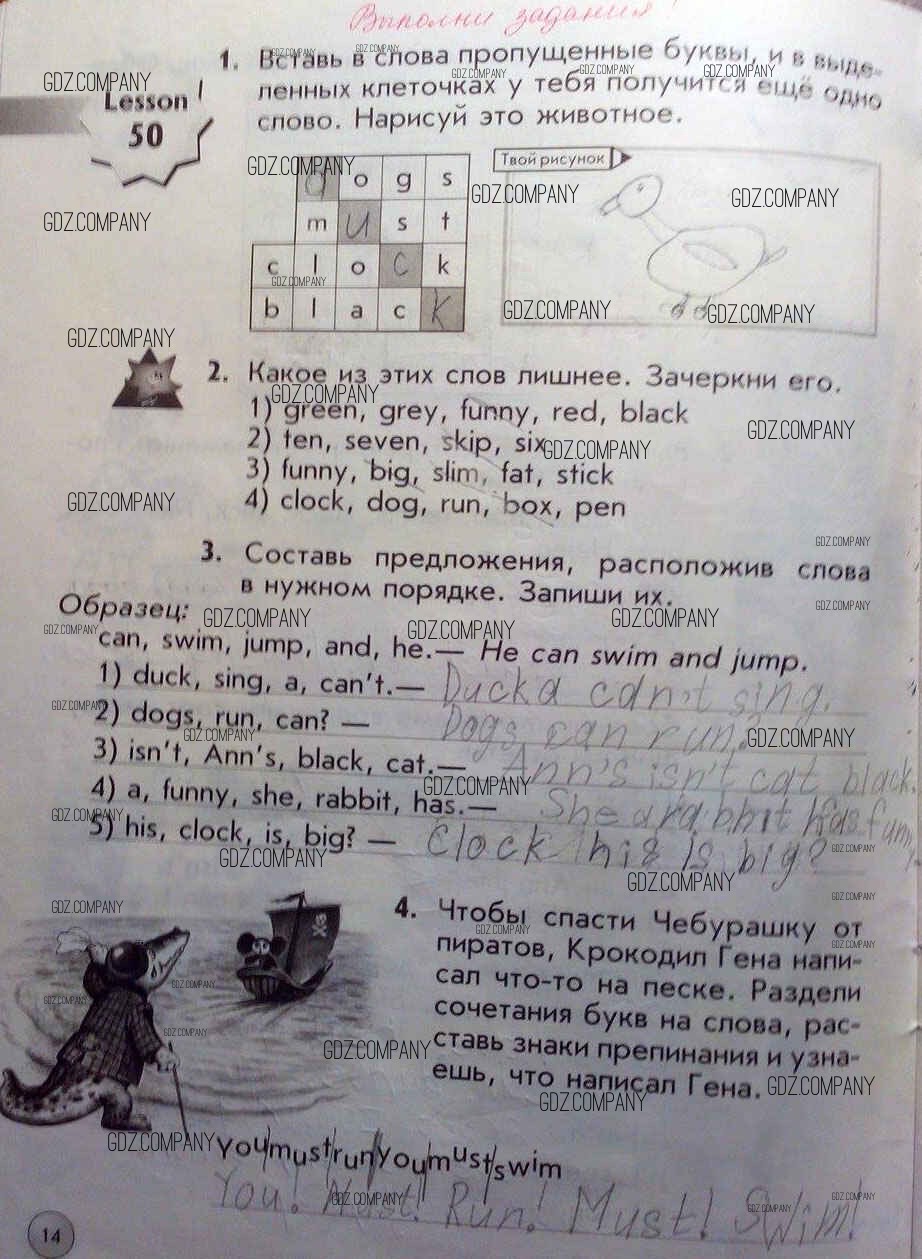 Выполни задания!
1. Вставь в слова пропущенные буквы, и в выде-
ленных клеточках у тебя получится ещё одно
слово. Нарисуй это животное.
Lesson
50
d o g s
m u s t
c l o c k
b l a c k
Твой рисунок
2. Какое из этих слов лишнее. Зачеркни его.
1) green, grey, funny, red, black
2) ten, seven, skip, six
3) funny, big, slim, fat, stick
4) clock, dog, run, box, pen
3. Составь предложения, расположив слова
в нужном порядке. Запиши их.
Образец:
can, swim, jump, and, he.— He can swim and jump.
1) duck, sing, a, can't.— Duck a can't sing.
2) dogs, run, can? — Dogs can run?
3) isn't, Ann's, black, cat.— Ann's isn't cat black.
4) a, funny, she, rabbit, has.— She a rabbit has funny
5) his, clock, is, big? — Clock his is big?
4. Чтобы спасти Чебурашку от
пиратов, Крокодил Гена напи-
сал что-то на песке. Раздели
сочетания букв на слова, рас-
ставь знаки препинания и узна-
ешь, что написал Гена.
You/must/run/you/must/swim
You! Must! Run! Must! Swim!
14
GDZ.COMPANY